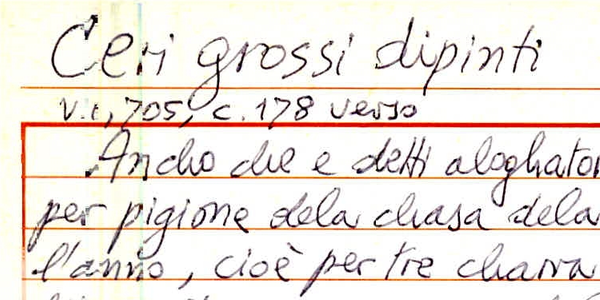 Ceri grossi dipinti
V.i, 705, c. 178 verso
Ancho che e detti aloghator
per pigione dela chasa dela
l'anno, cioè per tre